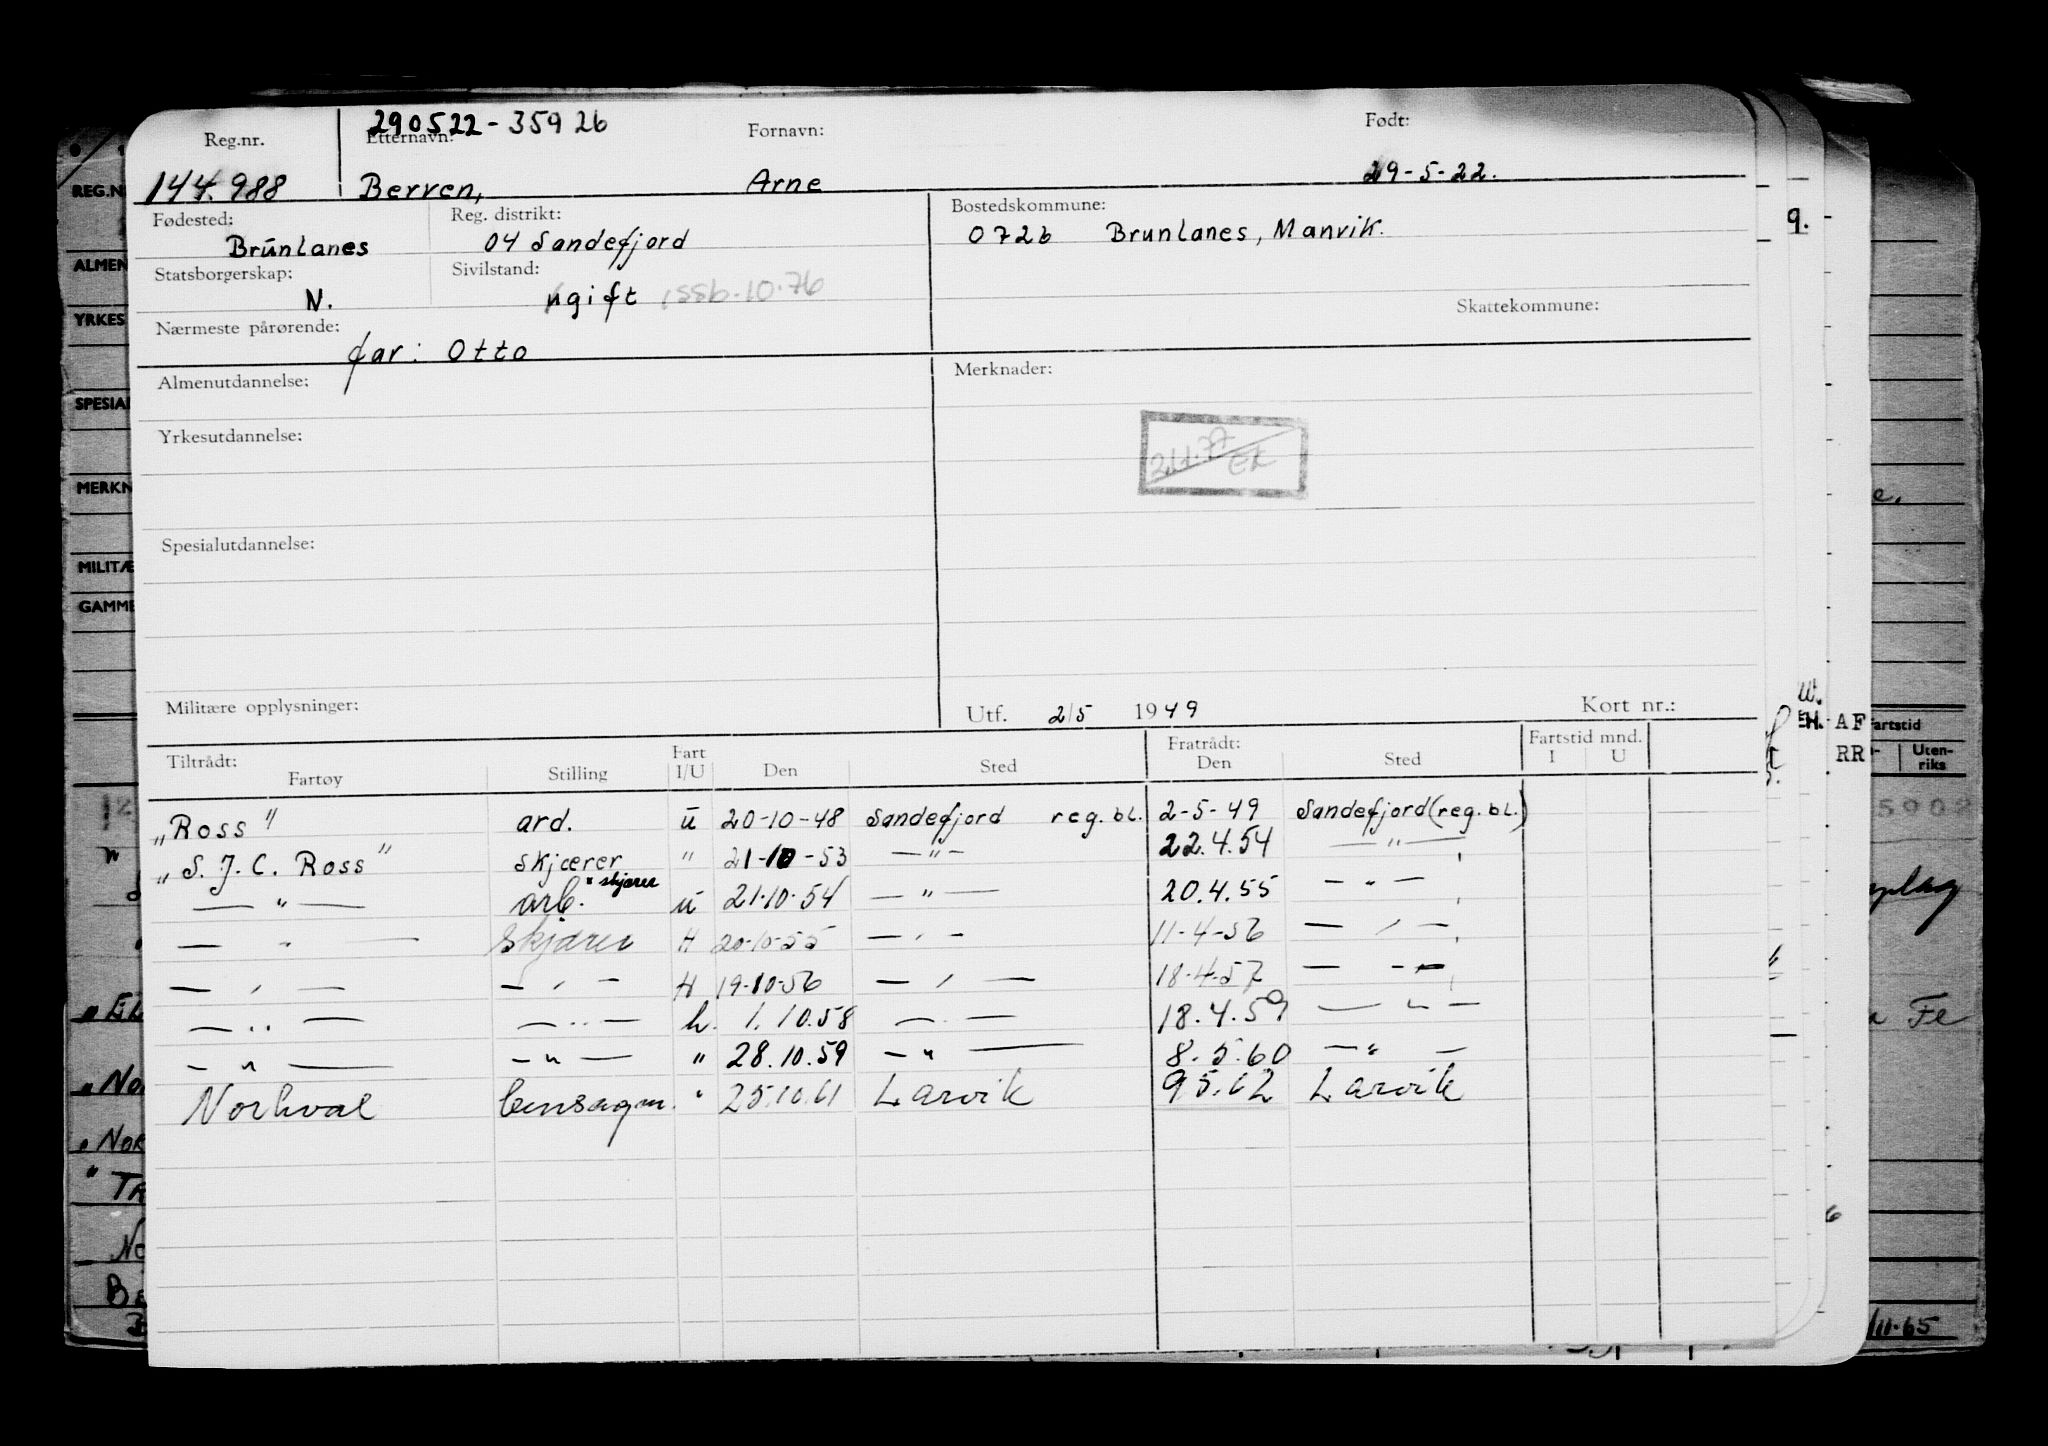 290522-35926
Reg.nr. Etternavn: Fornavn: Født:
144.988 Berven, Arne 29-5-22.
Fødested: Reg. distrikt: Bostedskommune:
Brunlanes 04 Sandefjord 0726 Brunlanes, Manvik.
Statsborgerskap: Sivilstand:
N. ugift
Skattekommune:
Nærmeste pårørende:
far: Otto
Almenutdannelse: Merknader:
Yrkesutdannelse:
EK
Spesialutdannelse:
Militære opplysninger: Utf. 2/5 1949 Kort nr.:
Tiltrådt: Fart Fratrådt: Fartstid mnd.
Fartøy Stilling I/U Den Sted Den Sted I U
„Ross" ard. u 20-10-48 Sandefjord reg.bl. 2-5-49 Sandefjord (reg.bl.)
„S.J.C. Ross" skjærer " 21-10-53 —"— 22.4.54 —"—
—"— arb. " skjærer u 21.10.54 —"— 20.4.55 —"—
—"— skjærer H 20-10-55 —"— 11-4-56 —"—
—"— —"— H 19-10-56 —"— 18-4-57 —"—
—"— —"— h. 1.10.58 —"— 18.4.59 —"—
—"— —"— " 28.10.59 —"— 8.5.60 —"—
Norhval bensagm. " 25.10.61 Larvik 9 5.62 Larvik
REG.N
ALMEN
YRKES
SPESIAL
MERKN
MILITÆ
GAMME
9.
e.
EH. AF
RR
Fartstid
Uten-
riks
Fe
11.65